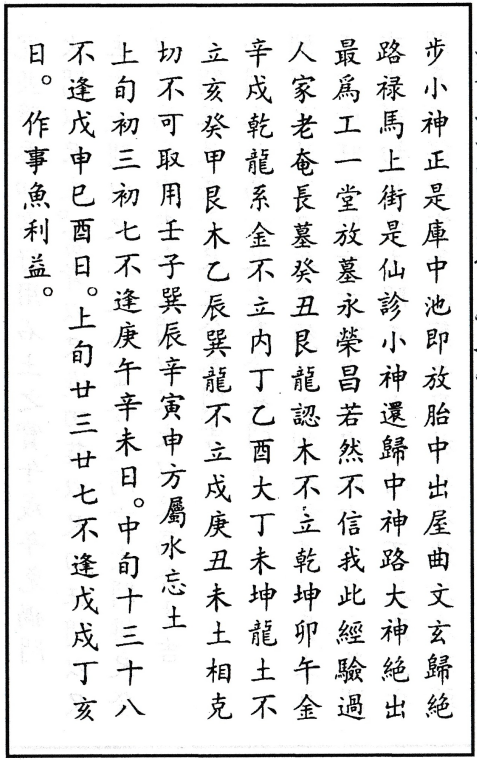 步小神正是庫中池即放胎中出屋曲文玄歸絶
路禄馬上街是仙診小神還歸中神路大神絶出
最爲工一堂放墓永榮昌若然不信我此經驗過
人家老奄長墓癸丑艮龍認木不立乾坤卯午金
辛戍乾龍系金不立内丁乙酉大丁未坤龍土不
立亥癸甲艮木乙辰巽龍不立戍庚丑未土相克
切不可取用壬子巽辰辛寅申方屬水忘土
上旬初三初七不逢庚午辛未日。中旬十三十八
不逢戊申巳酉日。上旬廿三廿七不逢戊戍丁亥
日。作事魚利益。